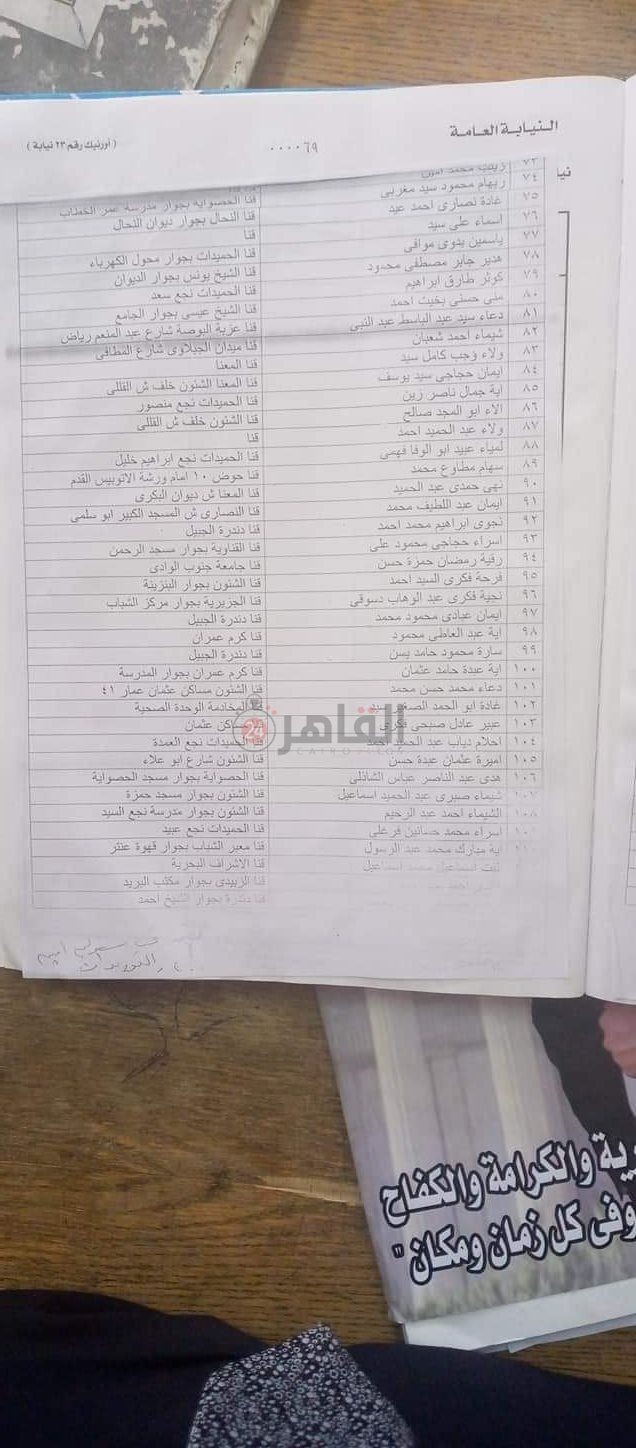 النيابة العامة
٠٠٠٠٦٩
( أورنيك رقم ٢٣ نيابة )
نيا
٧٣ زينب محمد
٧٤ ريهام محمود سيد مغربى قنا الحصوايه بجوار مدرسة عمر الخطاب
٧٥ غادة نصارى احمد عيد قنا النحال بجوار ديوان النحال
٧٦ اسماء على سيد قنا
٧٧ ياسمين بدوى موافى قنا الحميدات بجوار محول الكهرباء
٧٨ هدير جابر مصطفى محمود قنا الشيخ يونس بجوار الديوان
٧٩ كوثر طارق ابراهيم قنا الحميدات نجع سعد
٨٠ منى حسنى بخيت احمد قنا الشيخ عيسى بجوار الجامع
٨١ دعاء سيد عبد الباسط عبد النبى قنا عزبة البوصة شارع عبد المنعم رياض
٨٢ شيماء احمد شعبان قنا ميدان الجبلاوى شارع المطافى
٨٣ ولاء رجب كامل سيد قنا المعنا
٨٤ ايمان حجاجى سيد يوسف قنا المعنا الشئون خلف ش القللى
٨٥ اية جمال ناصر قنا الحميدات نجع منصور
٨٦ الاء ابو المجد صالح قنا الشئون خلف ش القللى
٨٧ ولاء عبد الحميد احمد قنا
٨٨ لمياء عبيد ابو الوفا فهمى قنا الحميدات نجع ابراهيم خليل
٨٩ سهام مطاوع محمد قنا حوض ١٠ امام ورشة الاتوبيس القدم
٩٠ نهى حمدى عبد الحميد قنا المعنا ش ديوان البكرى
٩١ ايمان عبد اللطيف محمد قنا النصارى ش المسجد الكبير ابو سلمى
٩٢ نجوى ابراهيم محمد احمد قنا دندرة الجبيل
٩٣ اسراء حجاجى محمود على قنا القناوية بجوار مسجد الرحمن
٩٤ رقية رمضان حمزة حسن قنا جامعة جنوب الوادى
٩٥ فرحة فكرى السيد احمد قنا الشئون بجوار البنزينة
٩٦ نجية فكرى عبد الوهاب دسوقى قنا الجزيرية بجوار مركز الشباب
٩٧ ايمان عبادى محمود محمد قنا دندرة الجبيل
٩٨ اية عبد العاطى محمود قنا كرم عمران
٩٩ سارة محمود حامد يسن قنا دندرة الجبيل
١٠٠ اية عبدة حامد عثمان قنا كرم عمران بجوار المدرسة
١٠١ دعاء محمد حسن محمد قنا الشئون مساكن عثمان عمار ٤١
١٠٢ غادة ابو الحمد الصغير سيد قنا المخادمة الوحدة الصحية
١٠٣ عبير عادل صبحى فكرى مساكن عثمان
١٠٤ احلام دياب عبد الحميد احمد قنا الحميدات نجع العمدة
١٠٥ اميرة عثمان عبدة حسن قنا الشئون شارع ابو علاء
١٠٦ هدى عبد الناصر عباس الشاذلى قنا الحصواية بجوار مسجد الحصواية
١٠٧ شيماء صبرى عبد الحميد اسماعيل قنا الشئون بجوار مسجد حمزة
١٠٨ الشيماء احمد عبد الرحيم قنا الشئون بجوار مدرسة نجع السيد
اسراء محمد حسانين فرغلى قنا الحميدات نجع عبيد
اية مبارك محمد عبد الرسول قنا معبر الشباب بجوار قهوة عنتر
اسماعيل محمد اسماعيل قنا الاشراف البحرية
قنا الزبيدى بجوار مكتب البريد
قنا دندرة بجوار الشيخ احمد
القاهرة 24
CAIRO 24
رية والكرامة والكفاح
وفى كل زمان ومكان "